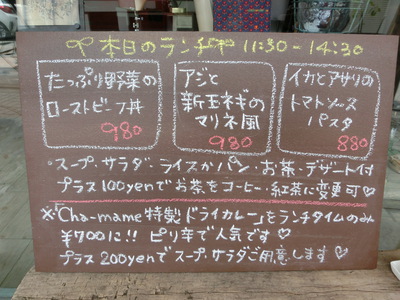 本日のランチ 11:30-14:30
たっぷり野菜の
ローストビーフ丼
980
アジと
新玉ネギの
マリネ風
980
イカとアサリの
トマトソース
パスタ
880
・スープ・サラダ・ライスかパン・お茶・デザート付
プラス100yenでお茶をコーヒー・紅茶に変更可♡
※「Cha-mame特製ドライカレー」をランチタイムのみ
¥700に!! ピリ辛で人気です♡
プラス200yenでスープ・サラダご用意します♡